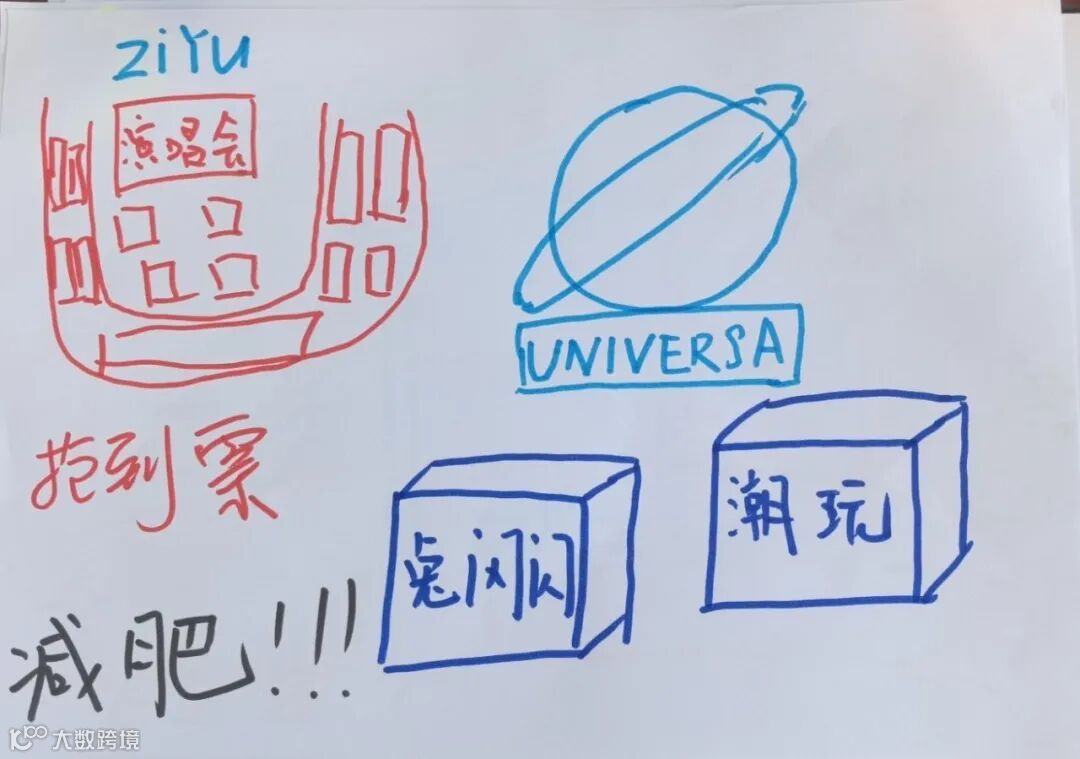 ZiYU
演唱会
UNIVERSA
抢到票
潮玩
兔闪闪
减肥!!!
大数跨境